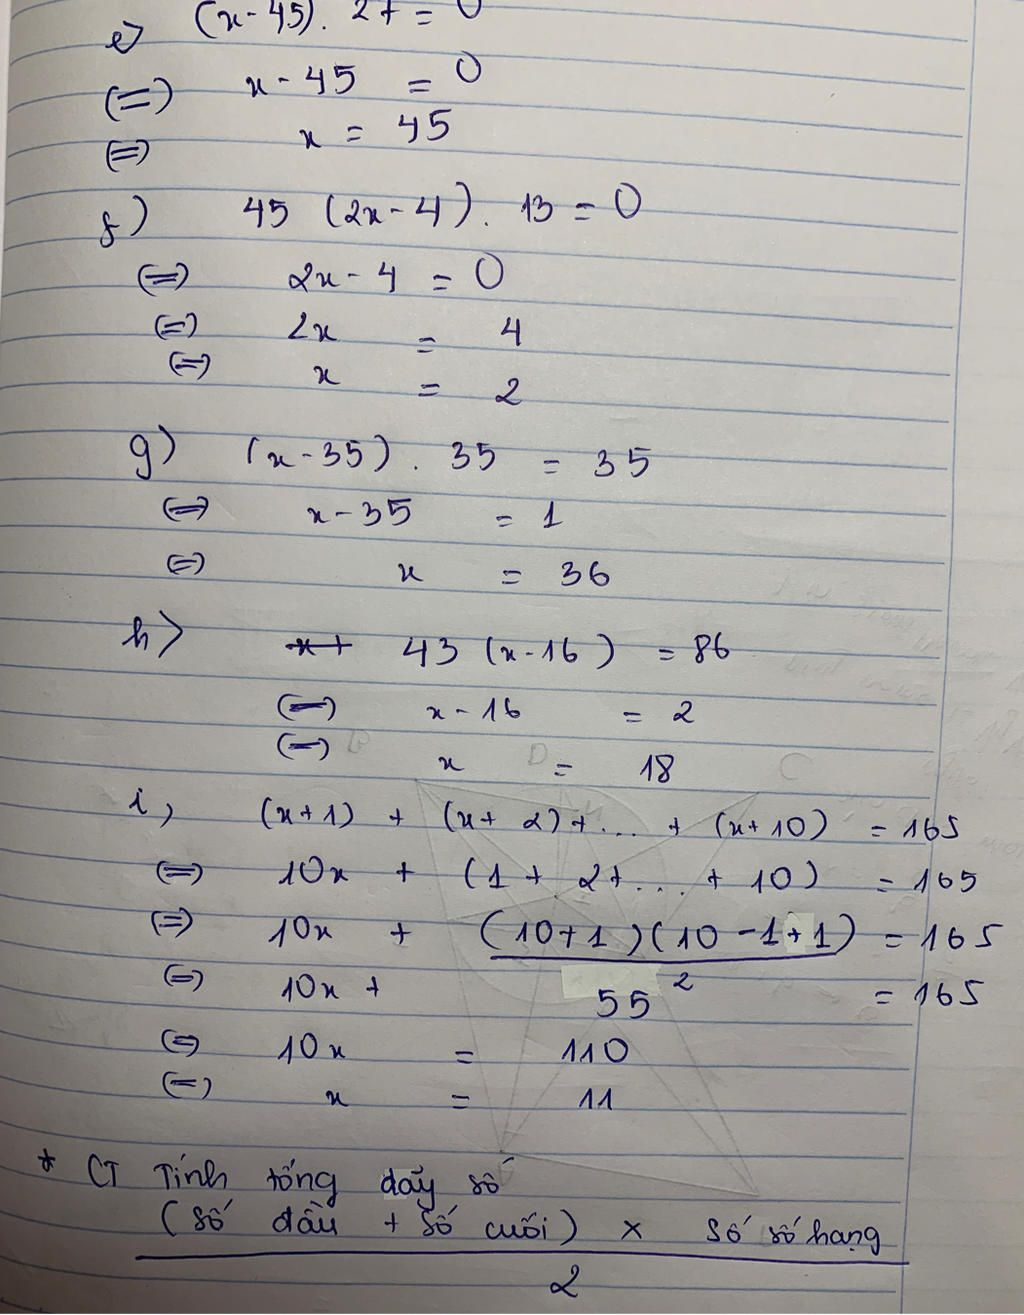 e) (x-45). 27 = 0
(=) x - 45 = 0
(=) x = 45
f) 45 (2x-4). 13 = 0
(=) 2x - 4 = 0
(=) 2x = 4
(=) x = 2
g) (x-35). 35 = 35
(=) x-35 = 1
(=) x = 36
h) 43 (x-16) = 86
(=) x-16 = 2
(=) x = 18
i, (x+1) + (x+2)+... + (x+10) = 165
(=) 10x + (1 + 2+... + 10) = 165
(=) 10x + (10+1)(10-1+1) / 2 = 165
(=) 10x + 55 = 165
(=) 10x = 110
(=) x = 11
* CT Tính tổng dãy số
(số đầu + số cuối) x số số hạng
2